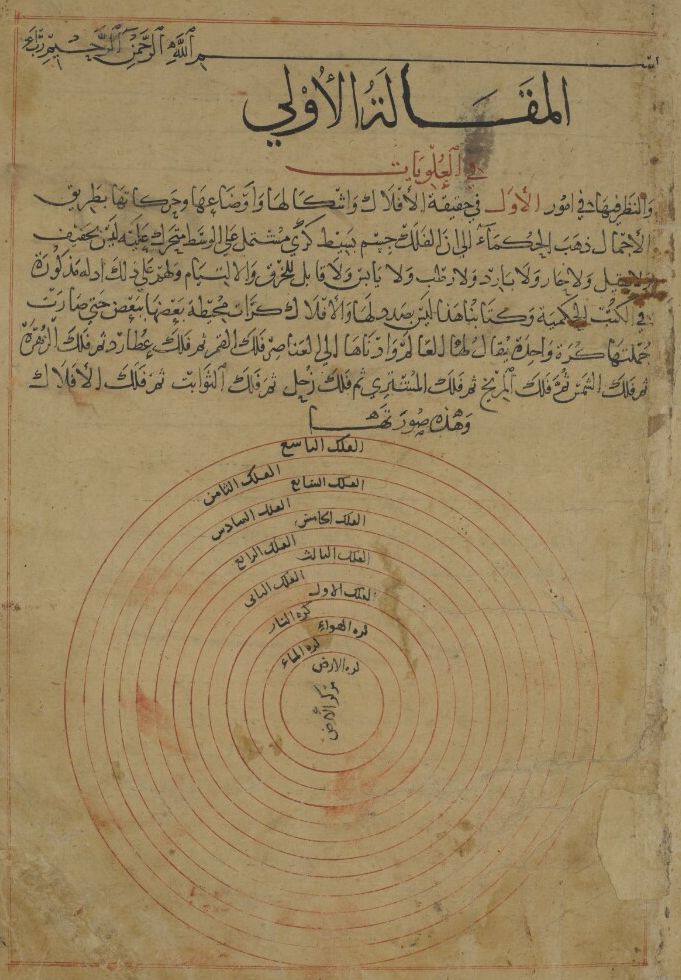 بسم الله الرحمن الرحيم
المقالة الأولي
في العلويات
والنظر فيها في امور الأول في حقيقة الأفلاك واشكالها واوضاعها وحركاتها بطريق
الاجمال ذهب الحكماء الى ان الفلك جسم بسيط كري مشتمل على الوسط متحرك عليه ليس بخفيف
ولا ثقيل ولا حار ولا بارد ولا رطب ولا يابس ولا قابل للخرق والالتيام ولهم على ذلك ادلة مذكورة
في الكتب الحكمية وكتابنا هذا ليس بصدد لها والافلاك كرات محيطة بعضها ببعض حتى صارت
جملتها كرة واحدة يقال لها العالم وادناها الى العناصر فلك القمر ثم فلك عطارد ثم فلك الزهرة
ثم فلك الشمس ثم فلك المريخ ثم فلك المشتري ثم فلك زحل ثم فلك الثوابت ثم فلك الافلاك
وهذه صورتها
الفلك التاسع
الفلك الثامن
الفلك السابع
الفلك السادس
الفلك الخامس
الفلك الرابع
الفلك الثالث
الفلك الثاني
الفلك الاول
كرة النار
كرة الهواء
كرة الماء
كرة الارض
مركز الأرض